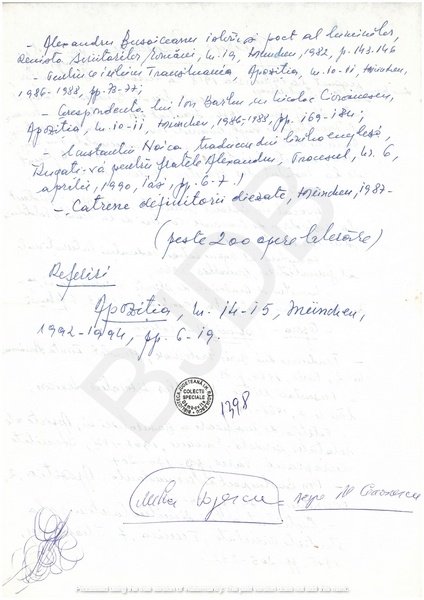 - Alexandru Busuioceanu iubirii poet al luminilor,
Revista Scriitorilor Români, nr. 19, München, 1982, p. 143-146
Transilvania, Apoziția, nr. 10-11, München,
1986-1988, pp. 73-77;
- Corespondența lui Ion Barbu cu Nicolae Coranescu,
Apoziția, nr. 10-11, München, 1986-1988, pp. 169-184;
- Constantin Noica, traducere din limba engleză,
Rugați-vă pentru fratele Alexandru, Procesul, nr. 6,
aprilie, 1990, Iași, pp. 6-7.)
- Catrene definitorii diezate, München, 1987-
(peste 200 opere
Referiri
Apoziția, nr. 14-15, München,
1992-1994, pp. 6-19.
COLECȚII
SPECIALE
1398
BJDB